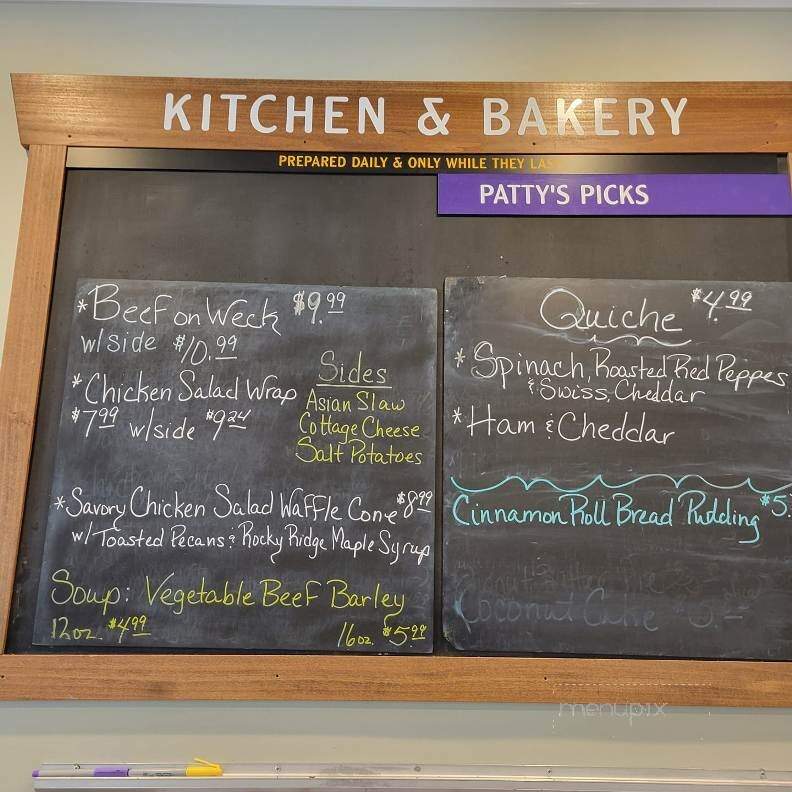 KITCHEN & BAKERY
PREPARED DAILY & ONLY WHILE THEY LAS
PATTY'S PICKS
*Beef on Weck $9.99
w/side $10.99
*Chicken Salad Wrap
$7.99 w/side $9.24
Sides
Asian Slaw
Cottage Cheese
Salt Potatoes
*Savory Chicken Salad Waffle Cone $8.99
w/Toasted Pecans & Rocky Ridge Maple Syrup
Soup: Vegetable Beef Barley
12oz. $4.99 16oz. $5.99
Quiche $4.99
* Spinach, Roasted Red Peppes
& Swiss, Cheddar
*Ham & Cheddar
Cinnamon Roll Bread Pudding $5.
Coconut Cake
menupix